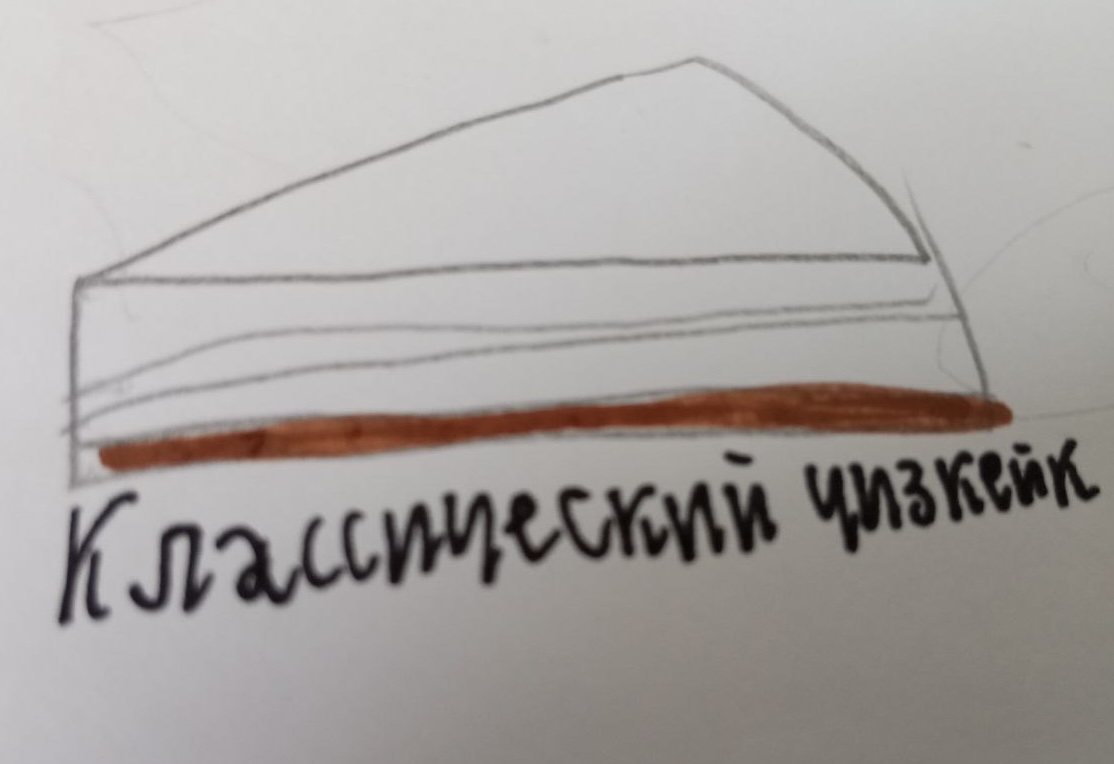 Классический чизкейк